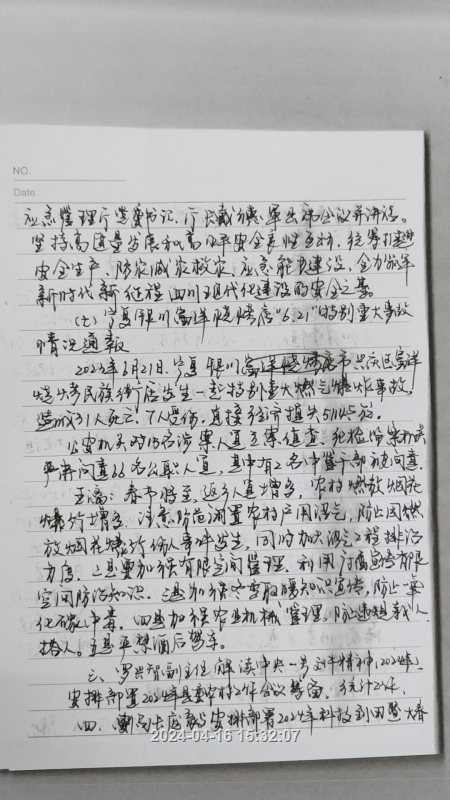 NO.
Date.
应急管理厅党委书记、厅长戴 出席会议并讲话。
坚持高质量发展和高水平安全良性互动，统筹打进
安全生产、防灾减灾救灾、应急能力建设，全力筑牢
新时代新征程四川现代化建设的安全之基。
（七）宁夏银川富洋烧烤店“6.21”特别重大事故
情况通报
2023年6月21日，宁夏银川 市兴庆区富洋
烧烤民族街店发生一起特别重大燃气爆炸事故，
造成31人死亡、7人受伤，直接经济损失5114.5万。
公安机关对15名涉案人员立案侦查，纪检监察机关
严肃问责26名公职人员，其中有2名中管干部被问责。
春节将至，返乡人员增多，农村燃放烟花
爆竹增多，注意防范闲置农村户用沼气，防止因燃
放烟花爆竹伤人事件发生，同时加大沼气工程排治
力度。二是要加强有限空间管理，利用 宣传有限
空间防治知识。三是加强 取暖知识宣传，防止一氧
化碳中毒。四是加强农业机械管理，防止违规载人、
搭人。五是严禁酒后驾车。
三、罗共 副主任解读中央一号文件精神，
安排部署2024年 农村工作会议筹备，
四、 安排部署2024年科技 大春
2024-04-16 15:32:07